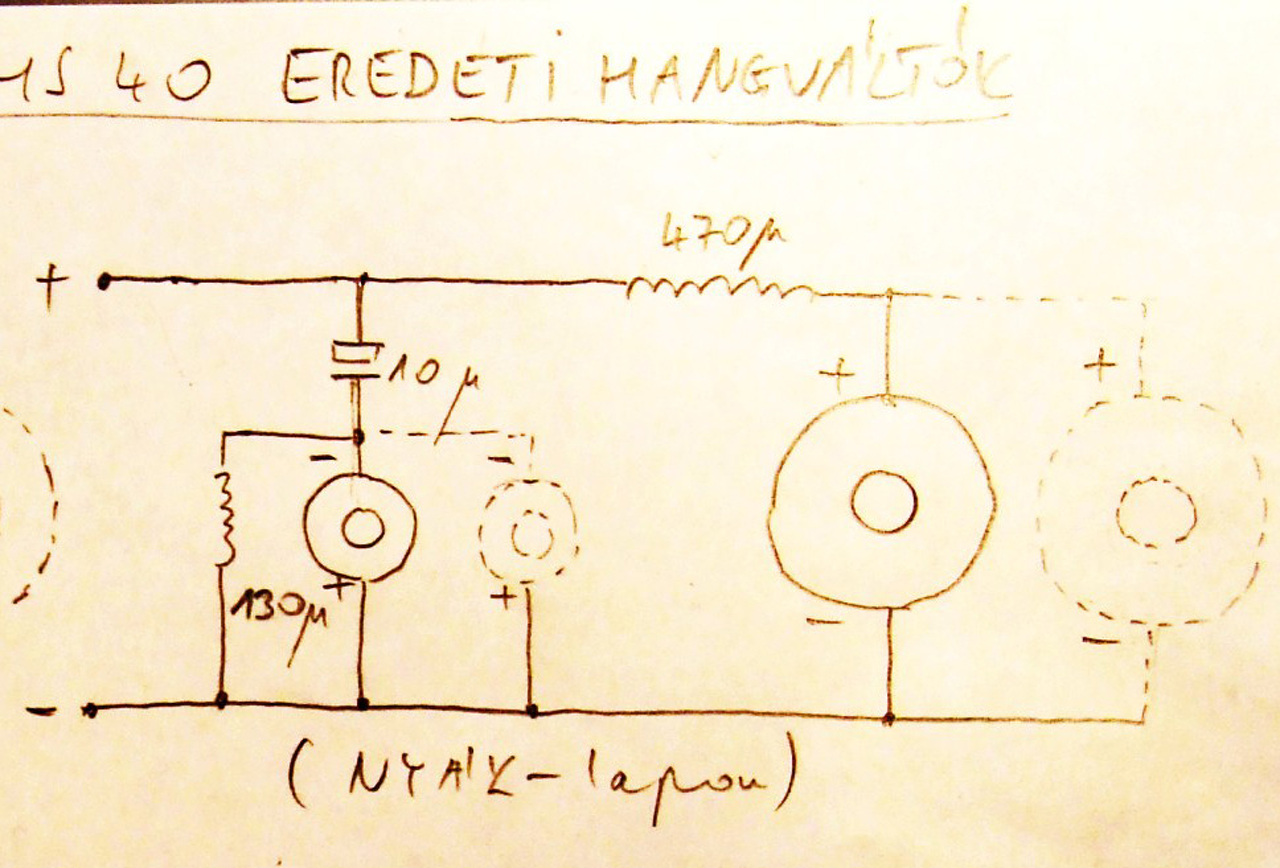 HS 40 EREDETI HANGVÁLTÓK
470µ
+
10µ
+ +
- -
130µ
+ +
- -
-
(NYÁK-lapon)